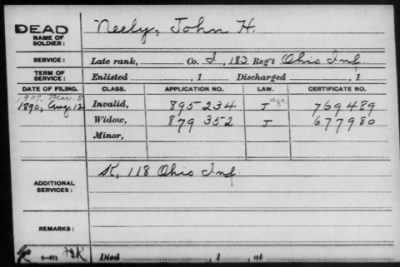 DEAD
NAME OF SOLDIER: Neely, John H.
SERVICE: Late rank, Co. I, 182 Reg't Ohio Inf
TERM OF SERVICE: Enlisted , 1 Discharged , 1
DATE OF FILING. CLASS. APPLICATION NO. LAW. CERTIFICATE NO.
1907, Mar 8 Invalid, 895234 J age 769489
1890, Aug 12 Widow, 879352 J 677980
Minor,
ADDITIONAL SERVICES: K, 118 Ohio Inf
REMARKS:
Died , 1 , at